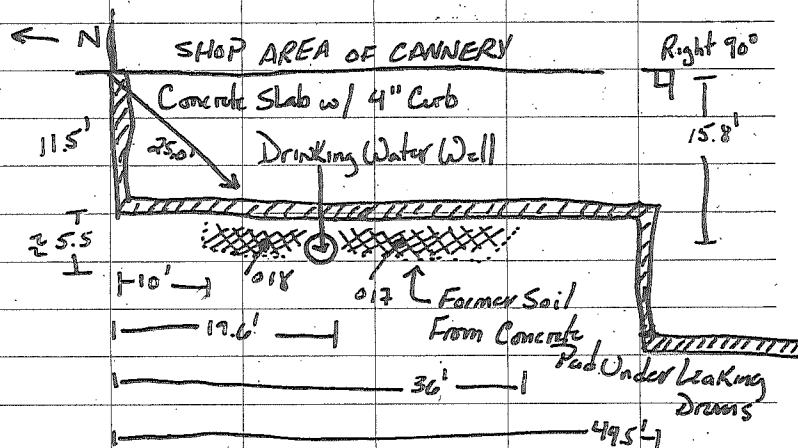 ← N
SHOP AREA OF CANNERY
Right 90°
Concrete Slab w/ 4" Curb
11.5'
25.0'
15.8'
Drinking Water Well
≈ 5.5
10'
018
017
Former Soil
From Concrete
Pad Under Leaking
Drums
19.6'
36'
49.5'